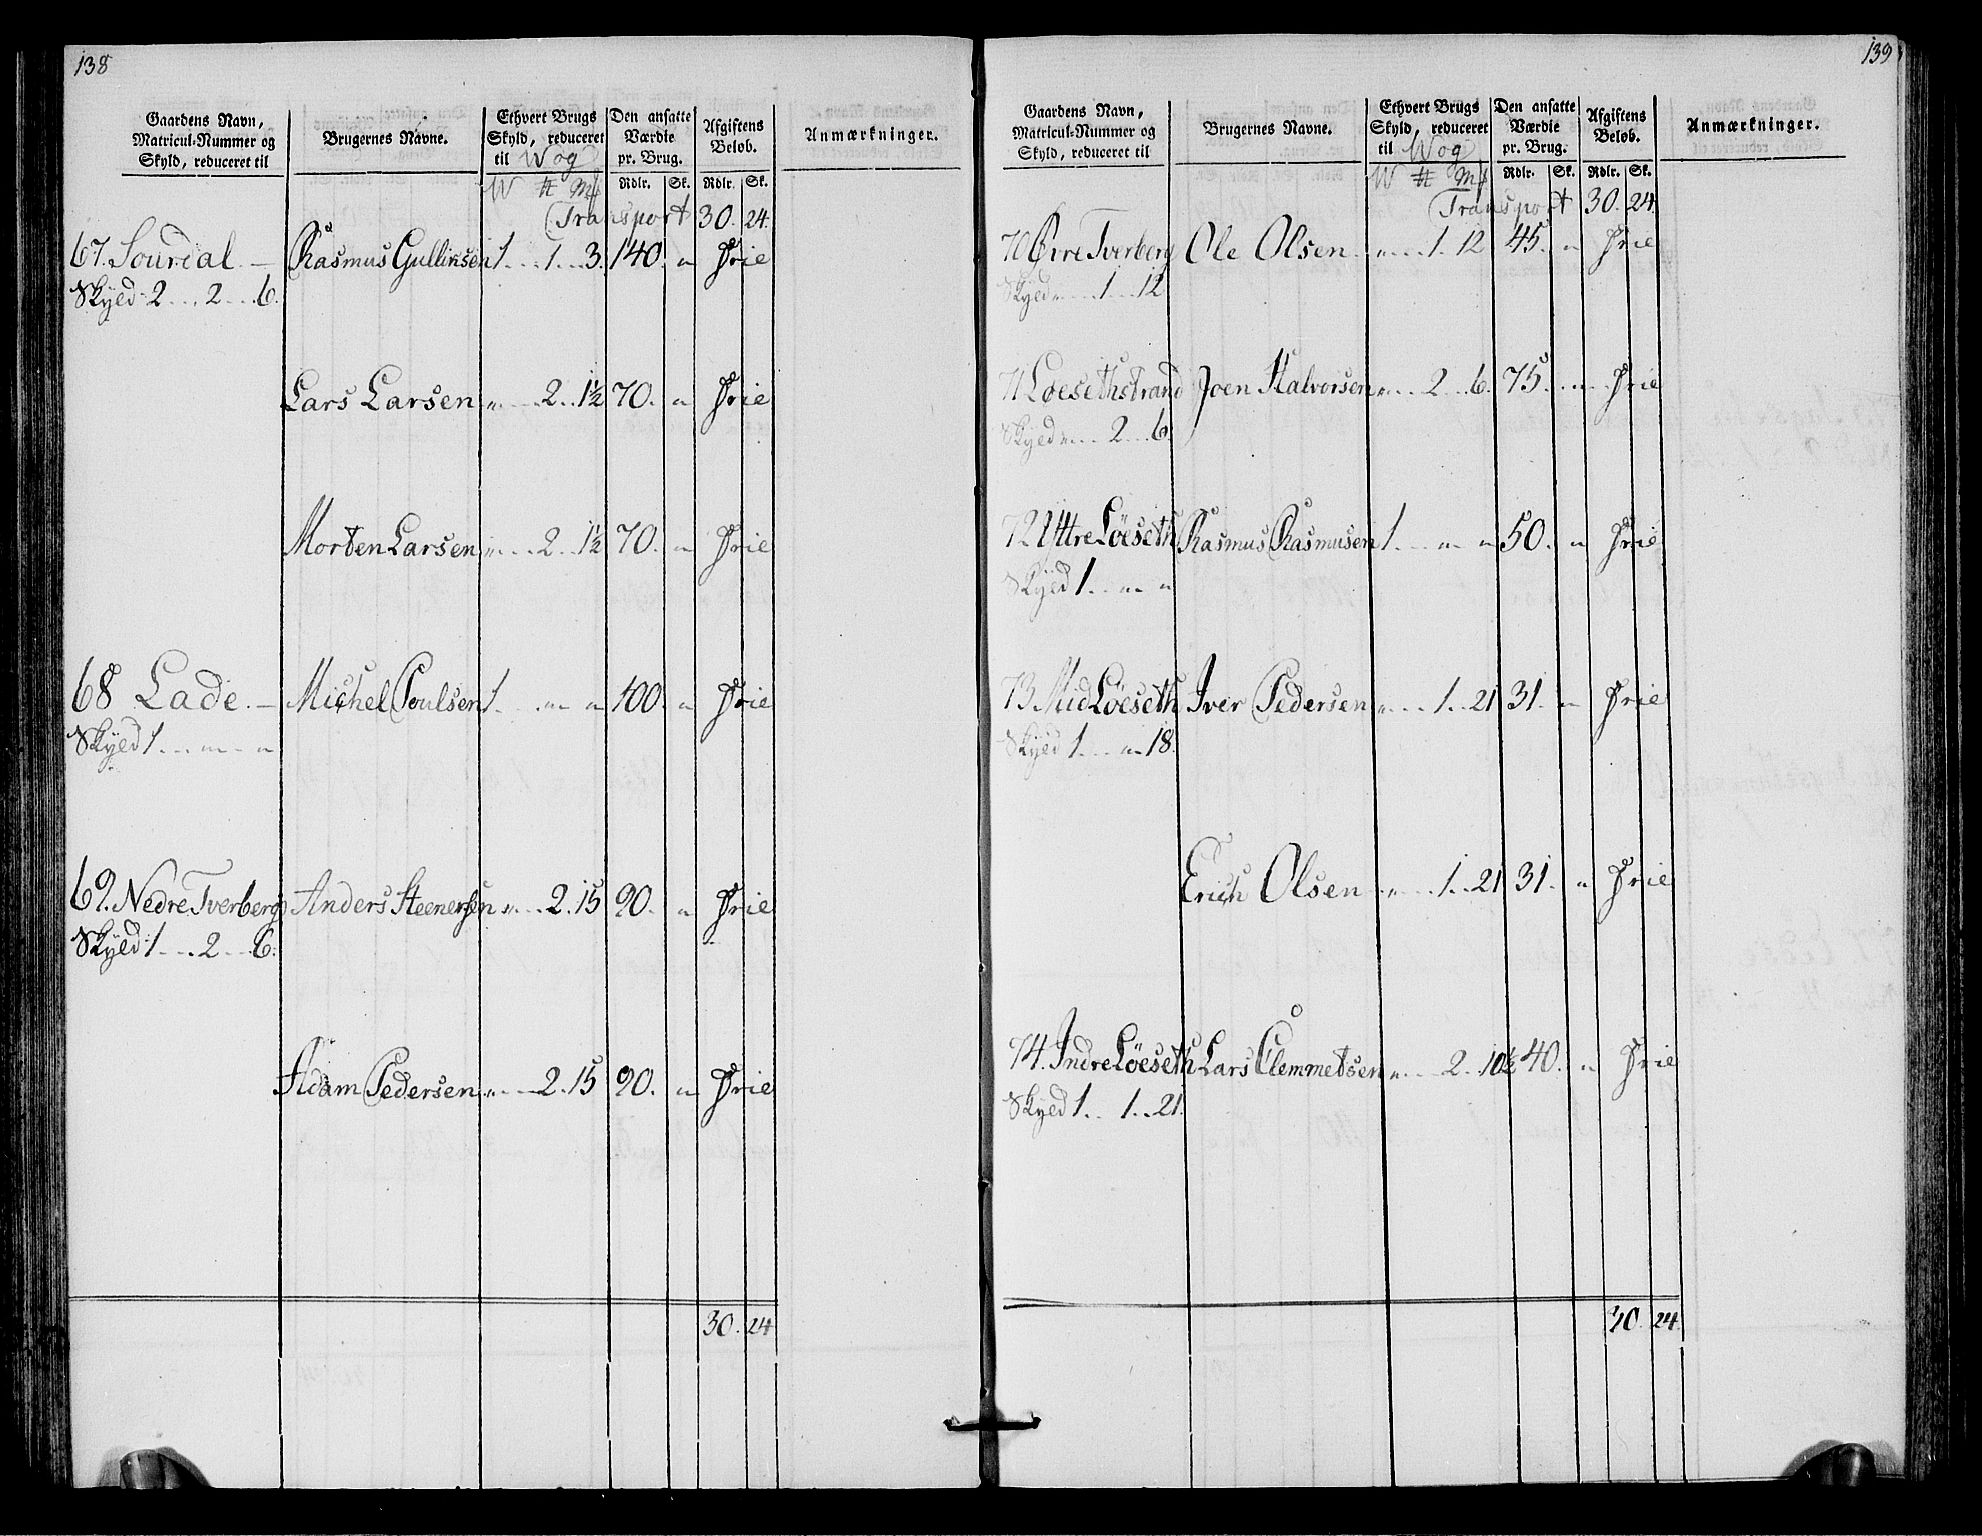 138
Gaardens Navn, Matricul-Nummer og Skyld, reduceret til
Brugernes Navne.
Ethvert Brugs Skyld, reduceret til Wog
Den ansatte Værdie pr. Brug.
Afgiftens Beløb.
Anmærkninger.
W ℔ Mk Rdlr. Sk. Rdlr. Sk.
Transport 30. 24.
67. Sourdal — Rasmus Gullinsen 1 . . 1 . . 3. 140. " Frie
Skyld 2 . . 2 . . 6.
Lars Larsen " . . 2 . . 1½ 70. " Frie
Morten Larsen " . . 2 . . 1½ 70. " Frie
68 Lade. — Michel Poulsen 1 . . " " 100. " Frie
Skyld 1 . . " . . "
69. Nedre Tverberg Anders Steenersen " . . 2. 15 90. " Frie
Skyld 1 . . 2 . . 6.
Adam Pedersen " . . 2. 15 90. " Frie
30. 24
139
Gaardens Navn, Matricul-Nummer og Skyld, reduceret til
Brugernes Navne.
Ethvert Brugs Skyld, reduceret til Wog
Den ansatte Værdie pr. Brug.
Afgiftens Beløb.
Anmærkninger.
W ℔ Mk Rdlr. Sk. Rdlr. Sk.
Transport 30. 24.
70 Øvre Tverberg Ole Olsen " . . 1. 12 45. " Frie
Skyld " . . 1 . . 12
71 Løesethstrand Joen Halvorsen " . . 2 . . 6. 75. " Frie
Skyld " . . 2 . . 6.
72 Yttre Løeseth Rasmus Rasmusen 1 . . " " 50. " Frie
Skyld 1 . . " . . "
73. Mid Løeseth Iver Pedersen " . . 1 . . 21 31. " Frie
Skyld 1 . . " 18.
Erich Olsen " . . 1 . . 21 31. " Frie
74. Indre Løeseth Lars Clemmetsen " . . 2. 10½ 40. " Frie
Skyld 1 . . 1 . . 21.
30. 24.